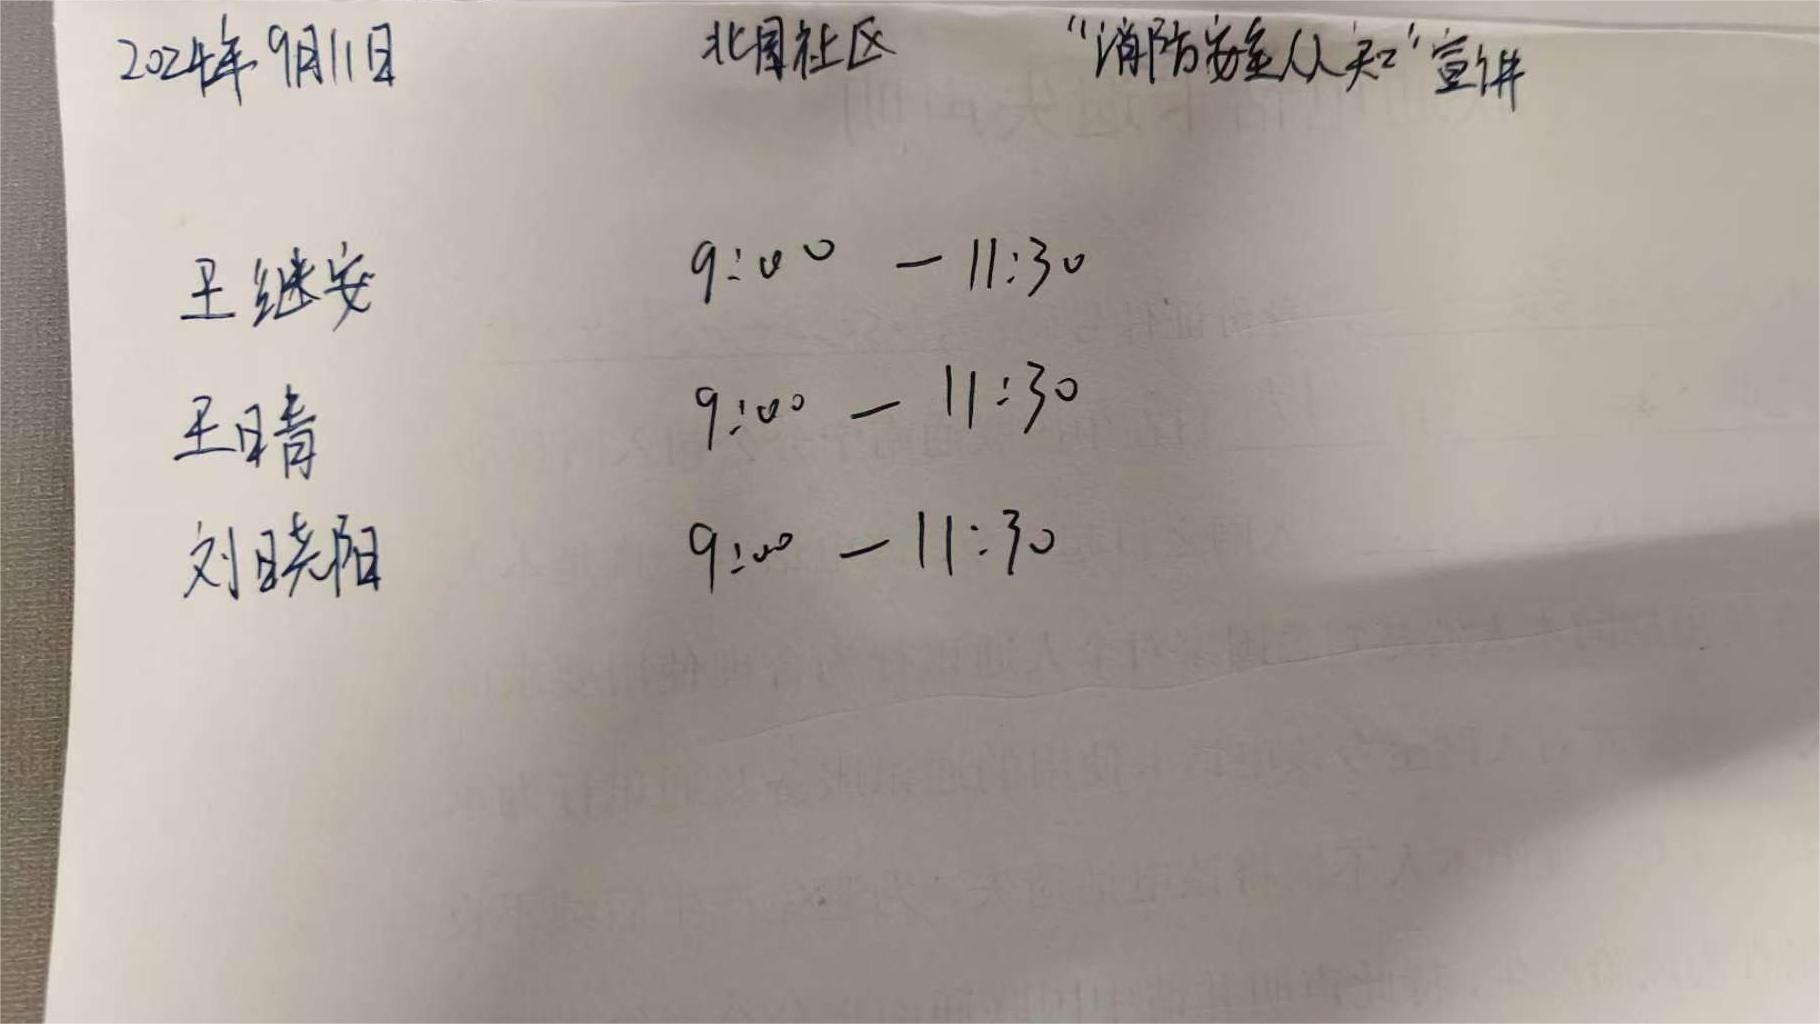 2024年9月11日 北园社区 “消防安全人人知”宣讲
王继安 9:00 - 11:30
王晴 9:00 - 11:30
刘晓阳 9:00 - 11:30